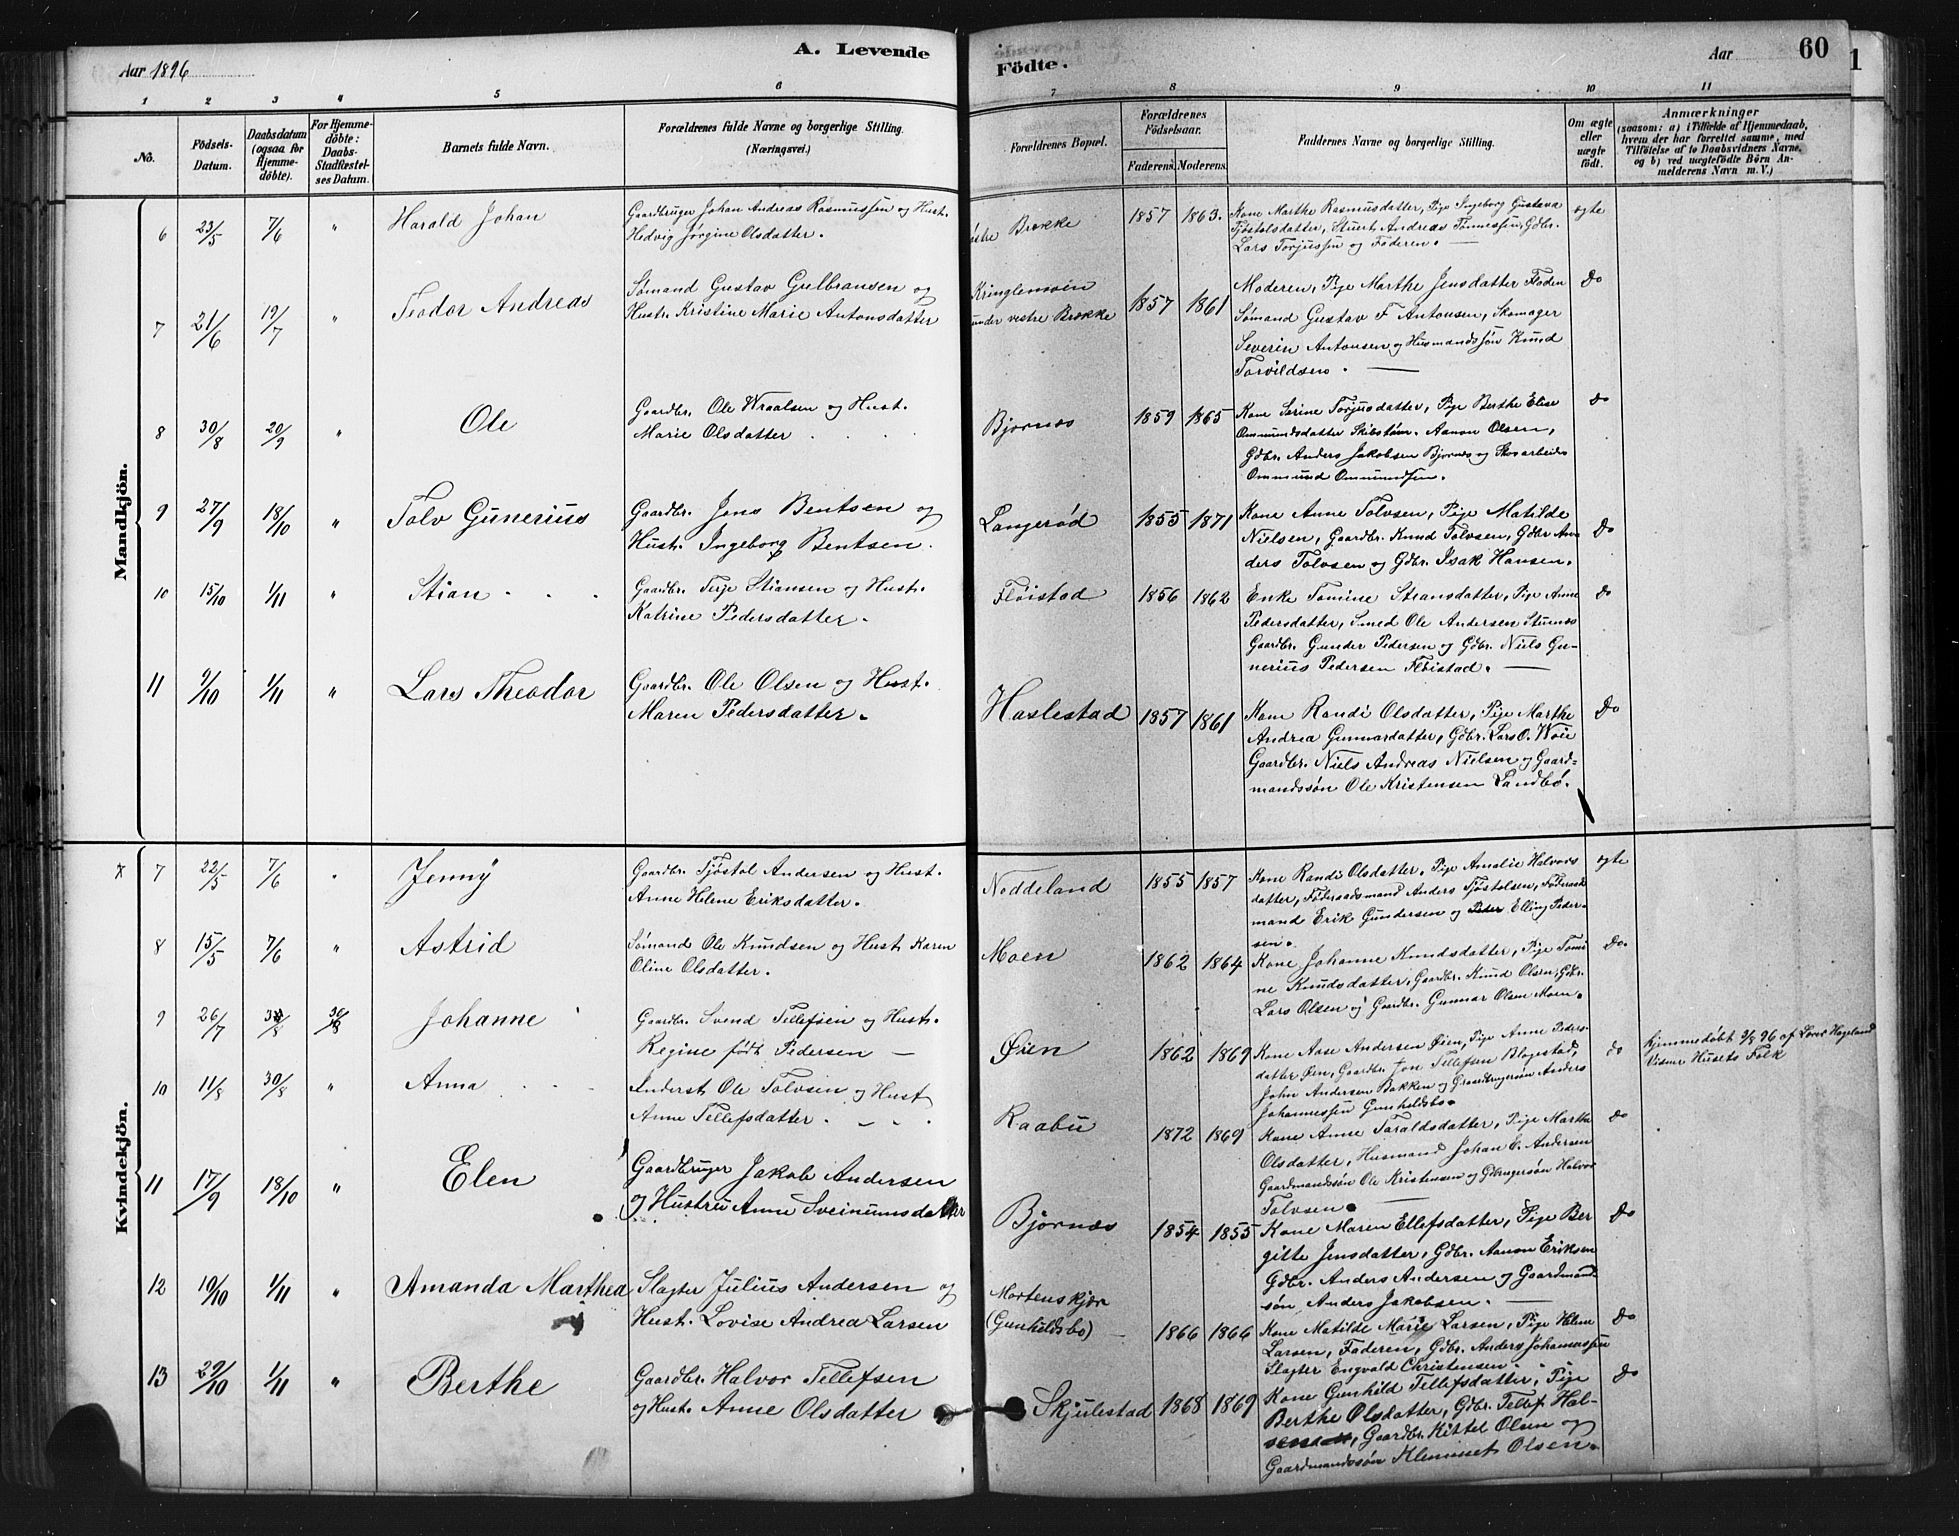 Aar 1896
A. Levende
1 2 3 4 5 6
No.
Födsels-Datum.
Daabsdatum (ogsaa for Hjemme-döbte).
For Hjemme-döbte: Daabs-Stadfæstel-ses Datum.
Barnets fulde Navn.
Forældrenes fulde Navne og borgerlige Stilling.
(Næringsvei.)
Mandkjön.
6 23/5 7/6 " Harald Johan
Gaardbruger Johan Andreas Rasmussen og Hust.
Hedvig Jørgine Olsdatter.
7 21/6 19/7 " Teodor Andreas
Sømand Gustav Gulbransen og
Hustr. Kristine Marie Antonsdatter
8 30/8 20/9 " Ole
Gaardbr. Ole Wraalsen og Hust.
Marie Olsdatter
9 27/9 18/10 " Tolv Gunerius
Gaardbr. Jens Bentsen og
Hust. Ingeborg Bentsen.
10 15/10 1/11 " Stian
Gaardbr. Terje Stiansen og Hust.
Katrine Pedersdatter.
11 9/10 1/11 " Lars Theodor
Gaardbr. Ole Olsen og Hust.
Maren Pedersdatter.
Kvindekjön.
7 22/5 7/6 " Jenny
Gaardbr. Tjøstol Andersen og Hust.
Anne Helene Eriksdatter.
8 15/5 7/6 " Astrid
Sømand Ole Knudsen og Hust. Karen
Oline Olsdatter.
9 26/7 Johanne
Gaardbr. Svend Tellefsen og Hust.
Regine født Pedersen —
10 11/8 30/8 " Anna
Inderst Ole Tolvsen og Hust
Anne Tellefsdatter.
11 17/9 18/10 " Elen
Gaardbruger Jakob Andersen
og Hustru Anne Sveinumsdatter
12 10/10 1/11 " Amanda Marthea
Slagter Julius Andersen og
Hust. Lovise Andrea Larsen
13 29/10 1/11 " Berthe
Gaardbr. Halvor Tellefsen
og Hust. Anne Olsdatter
Födte.
Aar
60
1
7 8 9 10 11
Forældrenes Bopæl.
Forældrenes Födselsaar.
Faderens. Moderens.
Faddernes Navne og borgerlige Stilling.
Om ægte eller uægte födt.
Anmærkninger
(saasom: a) i Tilfælde af Hjemmedaab,
hvem der har forrettet samme, med
Tilföielse af to Daabsvidners Navne,
og b) ved uægtefödte Börn An-
melderens Navn m. V.)
østre Brække 1857 1863.
Kone Marthe Rasmusdatter, Pige Ingeborg Gustava
Tjøstolsdatter, Stuert Andreas Tønnessen, Gdbr.
Lars Torjussen og Faderen. —
ægte
Kringlemoen
under vestre Brække 1857 1861
Moderen, Pige Marthe Jensdatter Floden
Sømand Gustav F Antonsen, Skomager
Severin Antonsen og Husmandssøn Knud
Torvildsen. —
Do
Bjørnæs 1859 1865
Kone Serine Torjusdatter, Pige Berthe Elise
Ommundsdatter Skibstøm. Aanon Olsen,
Gdbr. Anders Jakobsen Bjørnæs og Skosarbeider
Ommund Ommundsen.
Do
Langerød 1855 1871
Kone Anne Tolvsen, Pige Matilde
Nielsen, Gaardbr. Knud Tolvsen, Gdbr An-
ders Tolvsen og Gdbr. Isak Hansen.
Do
Fløistad 1856 1862
Enke Tomine Stiansdatter, Pige Anne
Pedersdatter, Smed Ole Andersen Stuenes
Gaardbr. Gunder Pedersen og Gdbr. Niels Gu-
nerius Pedersen Fløistad. —
Do
Haslestad 1857 1861
Kone Randi Olsdatter, Pige Marthe
Andrea Gunnardatter, Gdbr. Lars O. Woie
Gaardbr. Niels Andreas Nielsen og Gaard-
mandssøn Ole Kristensen Landbø.
Do
Noddeland 1855 1857
Kone Randi Olsdatter, Pige Amalie Halvors
datter, Føderaadsmand Anders Tjøstolsen, Føderaads
mand Erik Gundersen og Elling Peder-
sen.
ægte
Moen 1862 1864
Kone Johanne Knudsdatter, Pige Tomi
ne Knudsdatter, Gaardbr. Knud Olsen, Gdbr.
Lars Olsen og Gaardbr. Gunnar Olsen Moen.
Do.
Øien 1862 1869
Kone Aase Andersen Øien, Pige Anne Peders-
datter Øien, Gaardbr. Jon Tellefsen Blagestad,
John Andersen Bakken og Gaardbrugersøn Anders
Johannessen Gunheldsbo.
do
Hjemmedøbt 2/8 96 af Lærer Hageland
Vidner Husets Folk
Raabu 1872 1869
Kone Anne Taraldsdatter, Pige Marthe
Olsdatter, Husmand Johan C. Andersen
Gaardmandssøn Ole Kristensen og Gdbrugersøn Halvor
Tolvsen.
Do
Bjørnæs 1854 1855
Kone Maren Ellefsdatter, Pige Ber
gitte Jensdatter, Gdbr. Aanon Eriksen
Gdbr. Anders Andersen og Gaardmand-
søn Anders Jakobsen. —
Do
Mortenskjær
(Gunheldsbo) — 1866 1866
Kone Matilde Marie Larsen, Pige Helene
Larsen, Faderen, Gdbr. Anders Johannessen
Slagter Engvald Christensen
Do
Skjulestad 1868 1869
Kone Gunhild Tellefsdatter, Pige
Berthe Olsdatter, Gdbr. Tellef Hal-
Gaardbr. Kittel Olsen og
Gaardmandssøn Klemmet Olsen.
Do